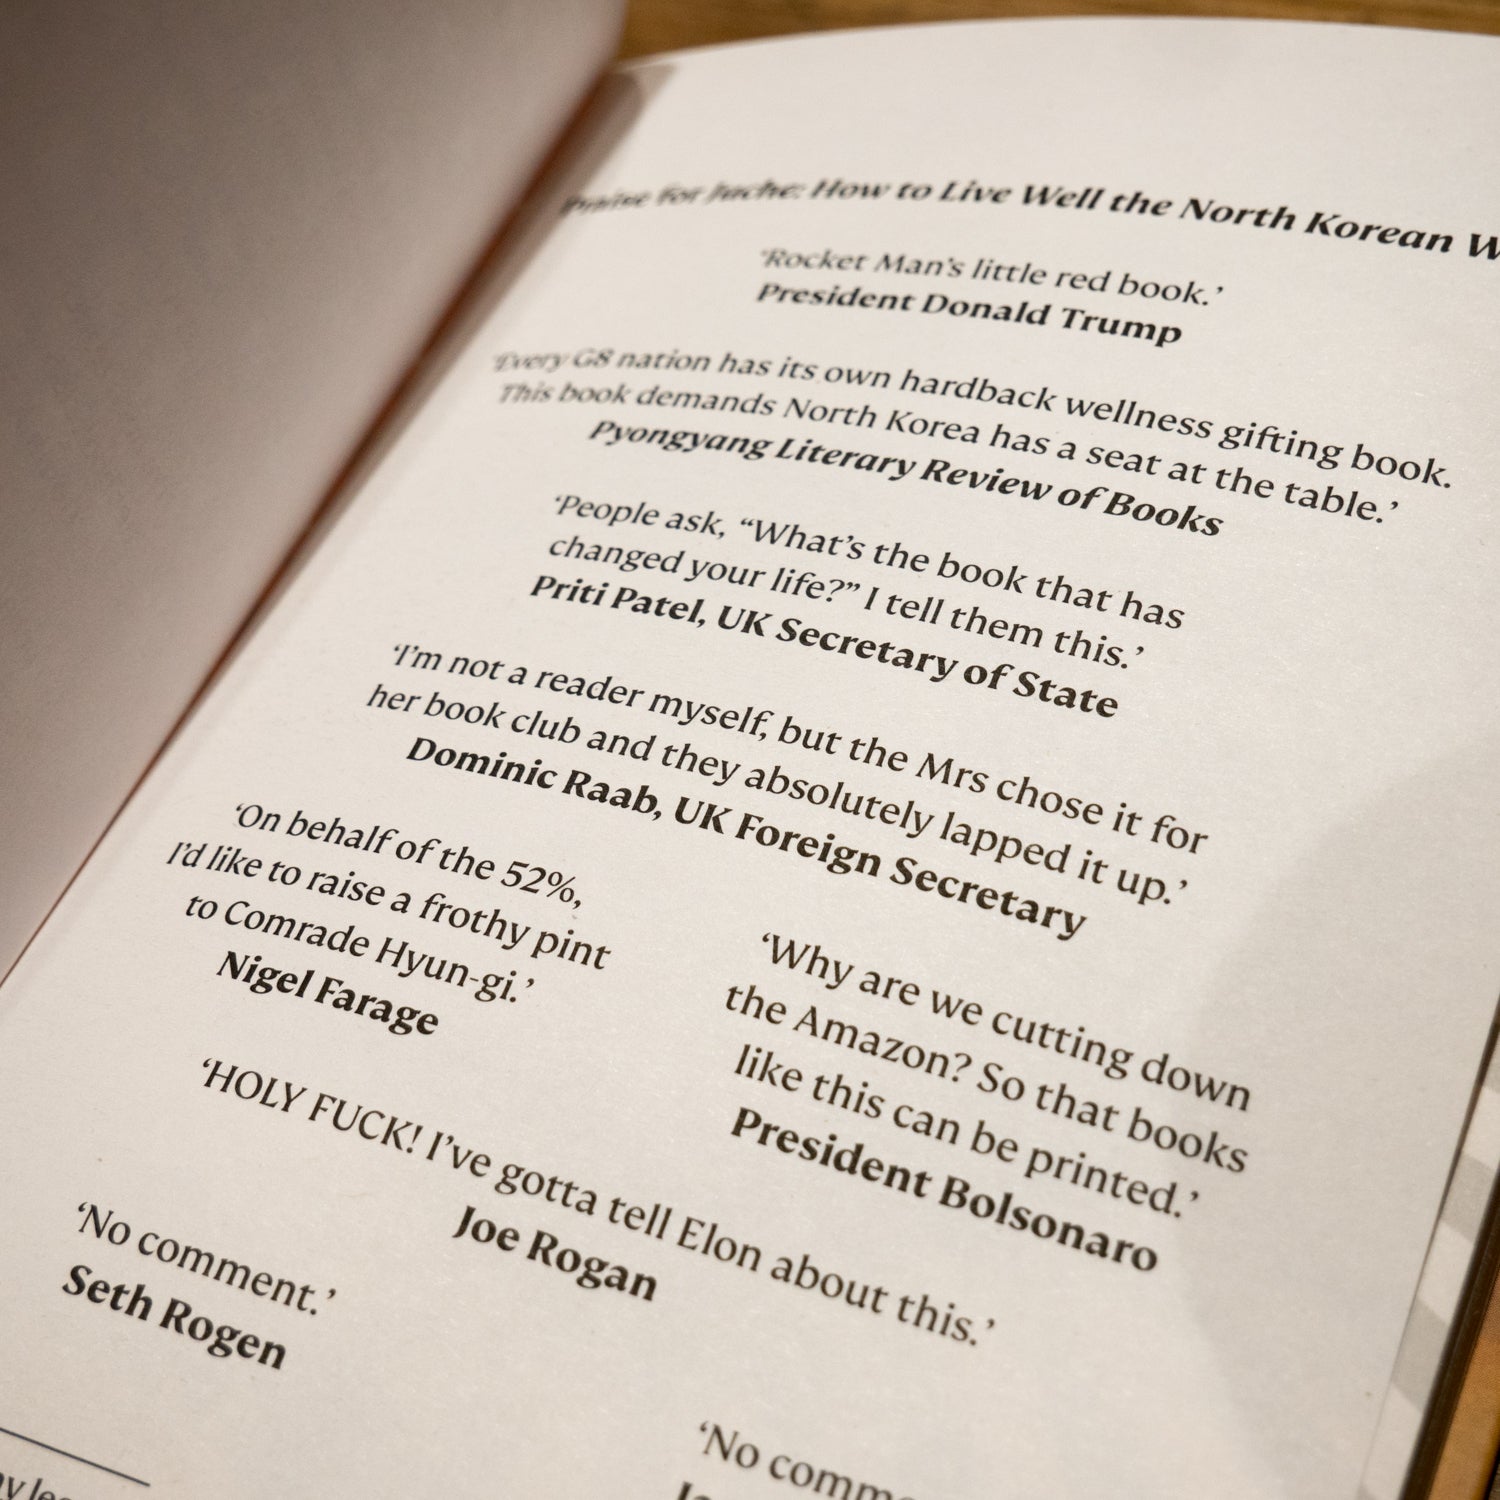 Praise for Juche: How to Live Well the North Korean W
‘Rocket Man’s little red book.’
President Donald Trump
‘Every G8 nation has its own hardback wellness gifting book.
This book demands North Korea has a seat at the table.’
Pyongyang Literary Review of Books
‘People ask, “What’s the book that has
changed your life?” I tell them this.’
Priti Patel, UK Secretary of State
‘I’m not a reader myself, but the Mrs chose it for
her book club and they absolutely lapped it up.’
Dominic Raab, UK Foreign Secretary
‘On behalf of the 52%,
I’d like to raise a frothy pint
to Comrade Hyun-gi.’
Nigel Farage
‘Why are we cutting down
the Amazon? So that books
like this can be printed.’
President Bolsonaro
‘HOLY FUCK! I’ve gotta tell Elon about this.’
Joe Rogan
‘No comment.’
Seth Rogen
‘No comm